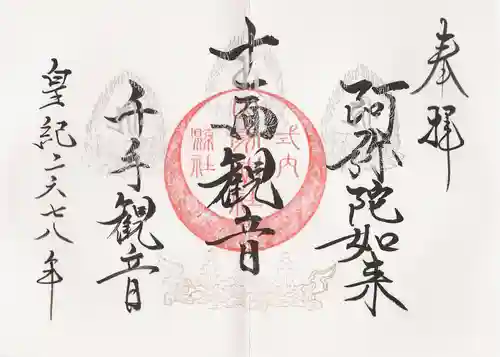 奉拝
阿弥陀如来
十一面観音
式内
縣社
千手観音
皇紀二六七八年